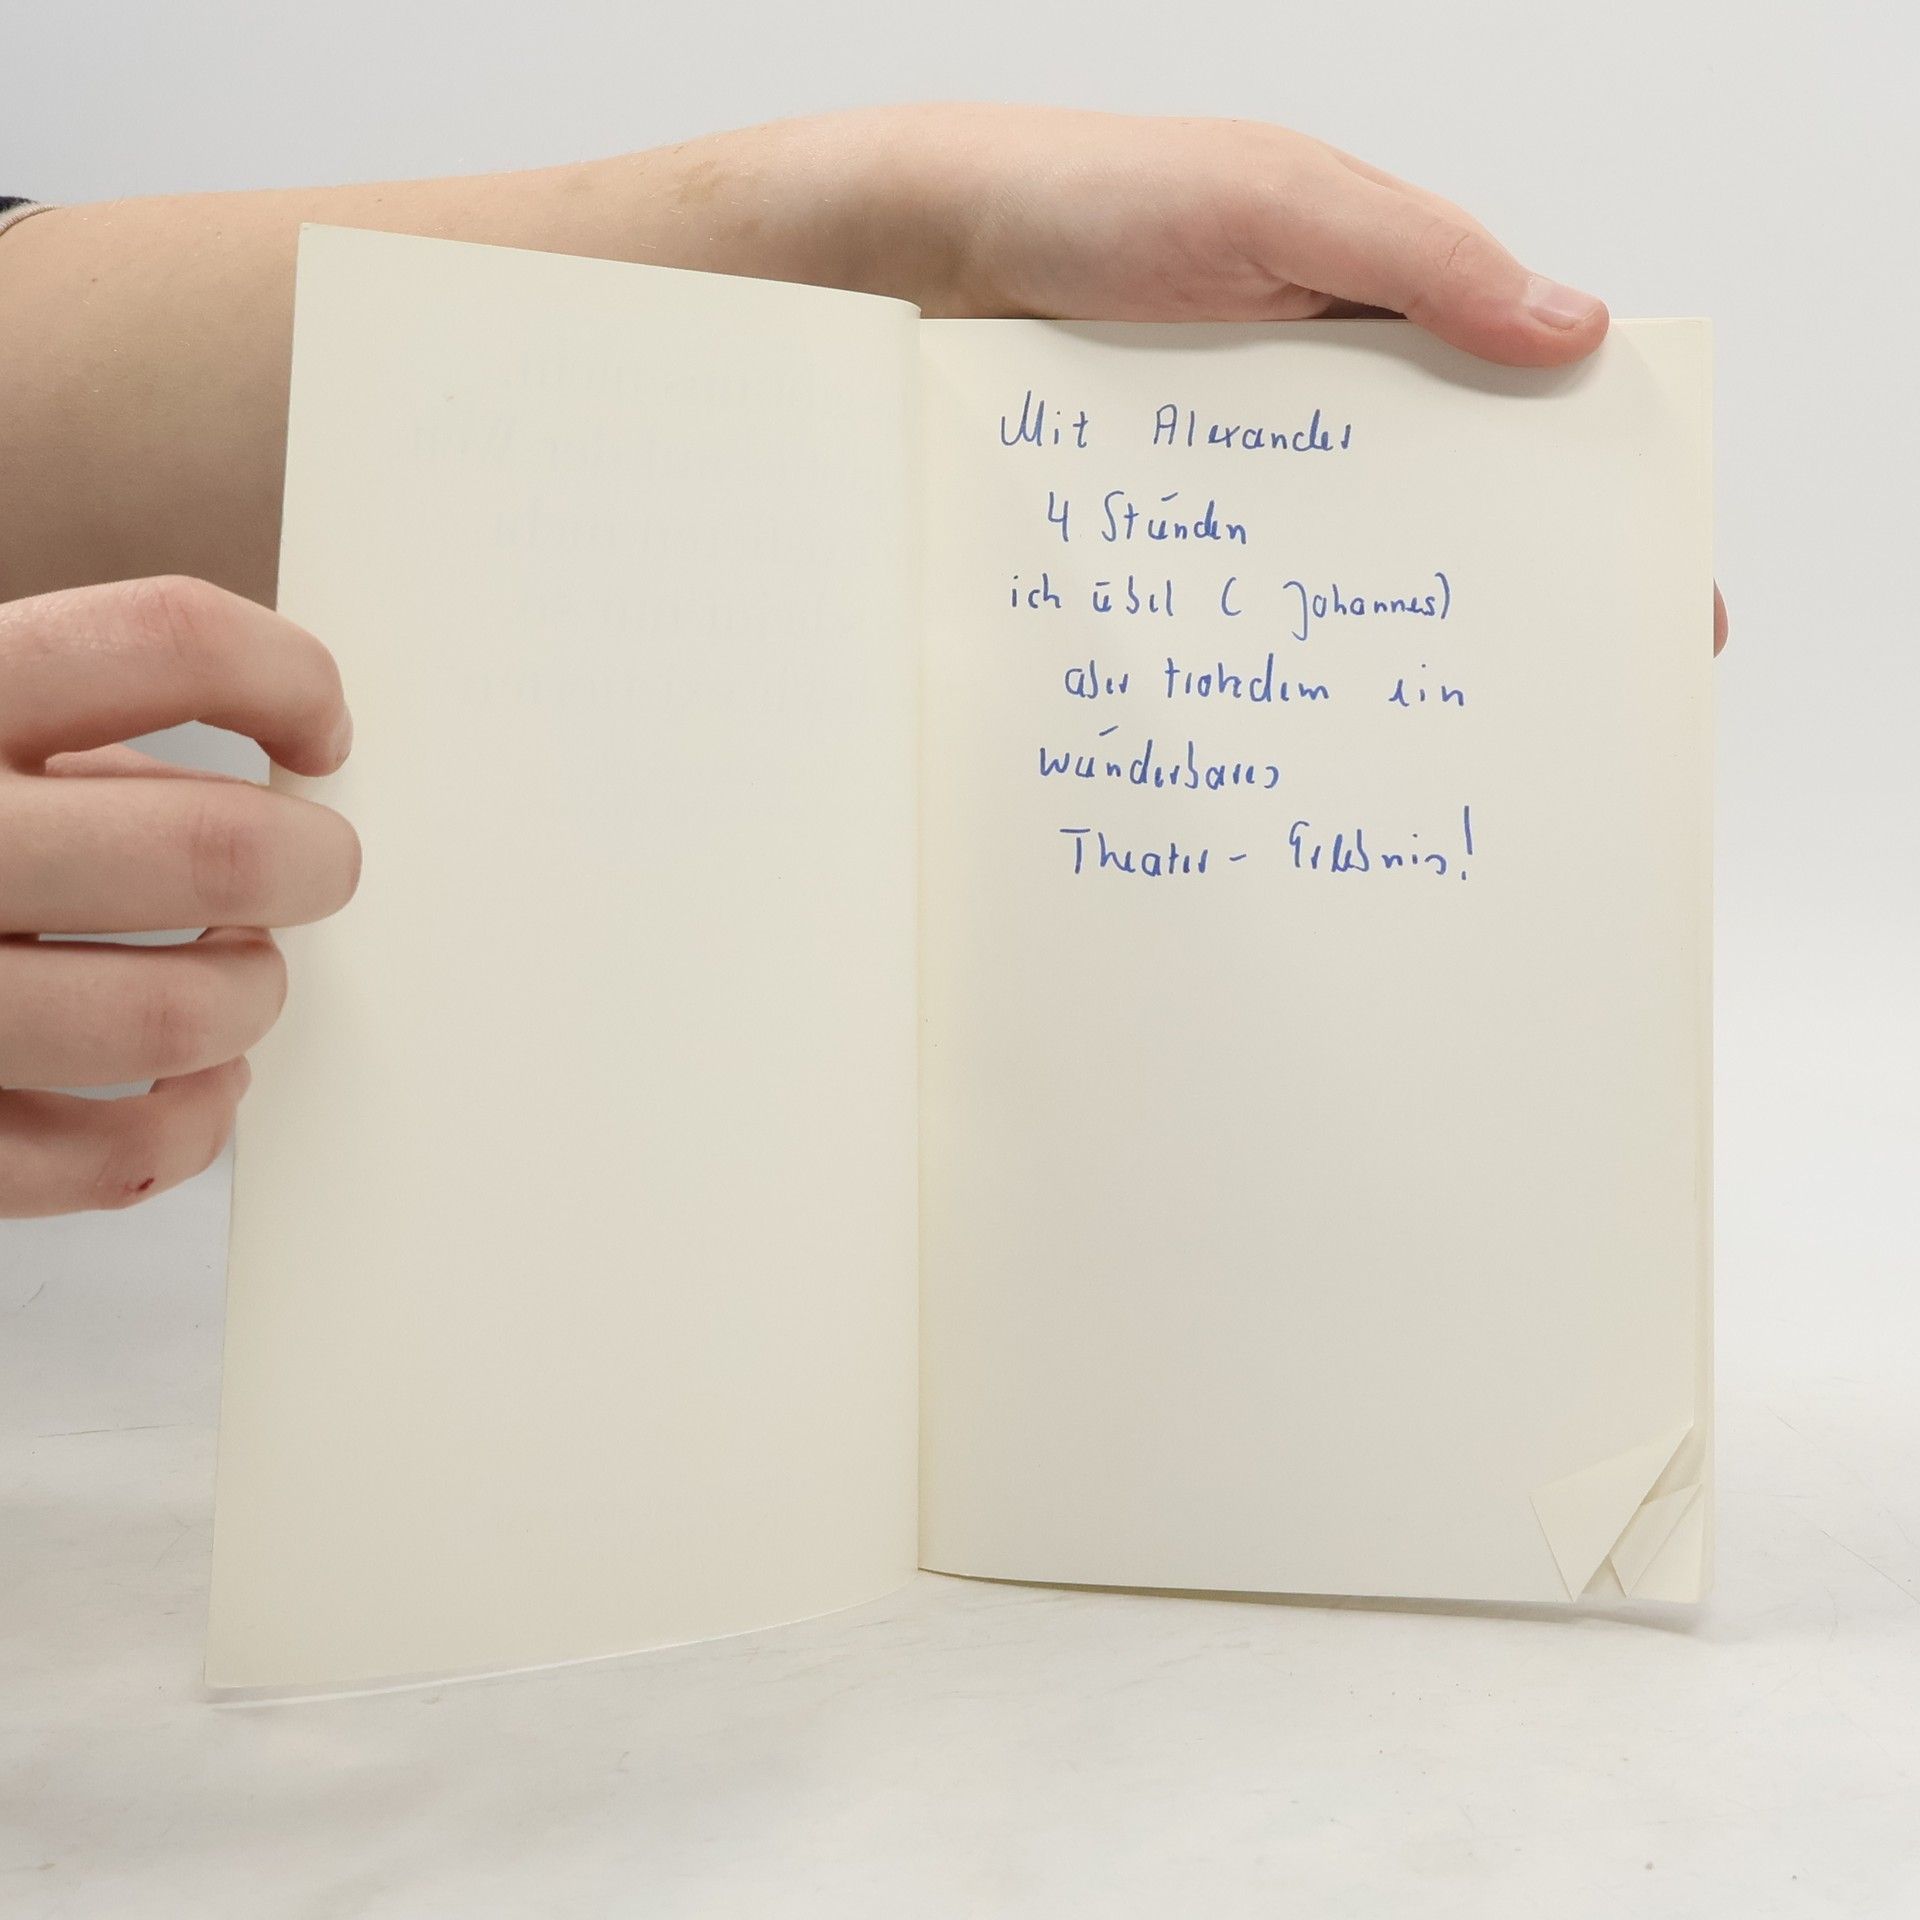 Mit Alexander
4 Stunden
ich übel ( Johannes)
aber trotzdem ein
wunderbares
Theater - Erlebnis!